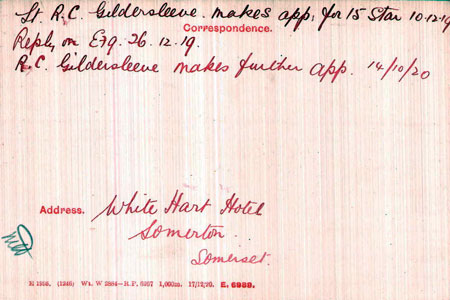 Lt. R.C. Gildersleeve. makes app. for 15 Star 10-12-19
Correspondence.
Reply on E79. 26.12.19.
R.C. Gildersleeve makes further app. 14/10/20
Address. White Hart Hotel
Somerton.
Somerset.
(1246) Wt. W 2884—R.P. 6957 1,000m. 17/12/20. E. 6989.